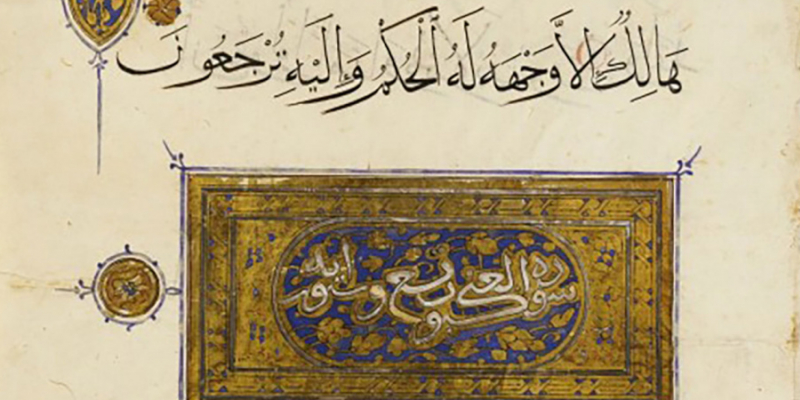 هَالِكٌ إِلاَّ وَجْهَهُ لَهُ الْحُكْمُ وَإِلَيْهِ تُرْجَعُونَ
سورة العنكبوت تسع وستون اية